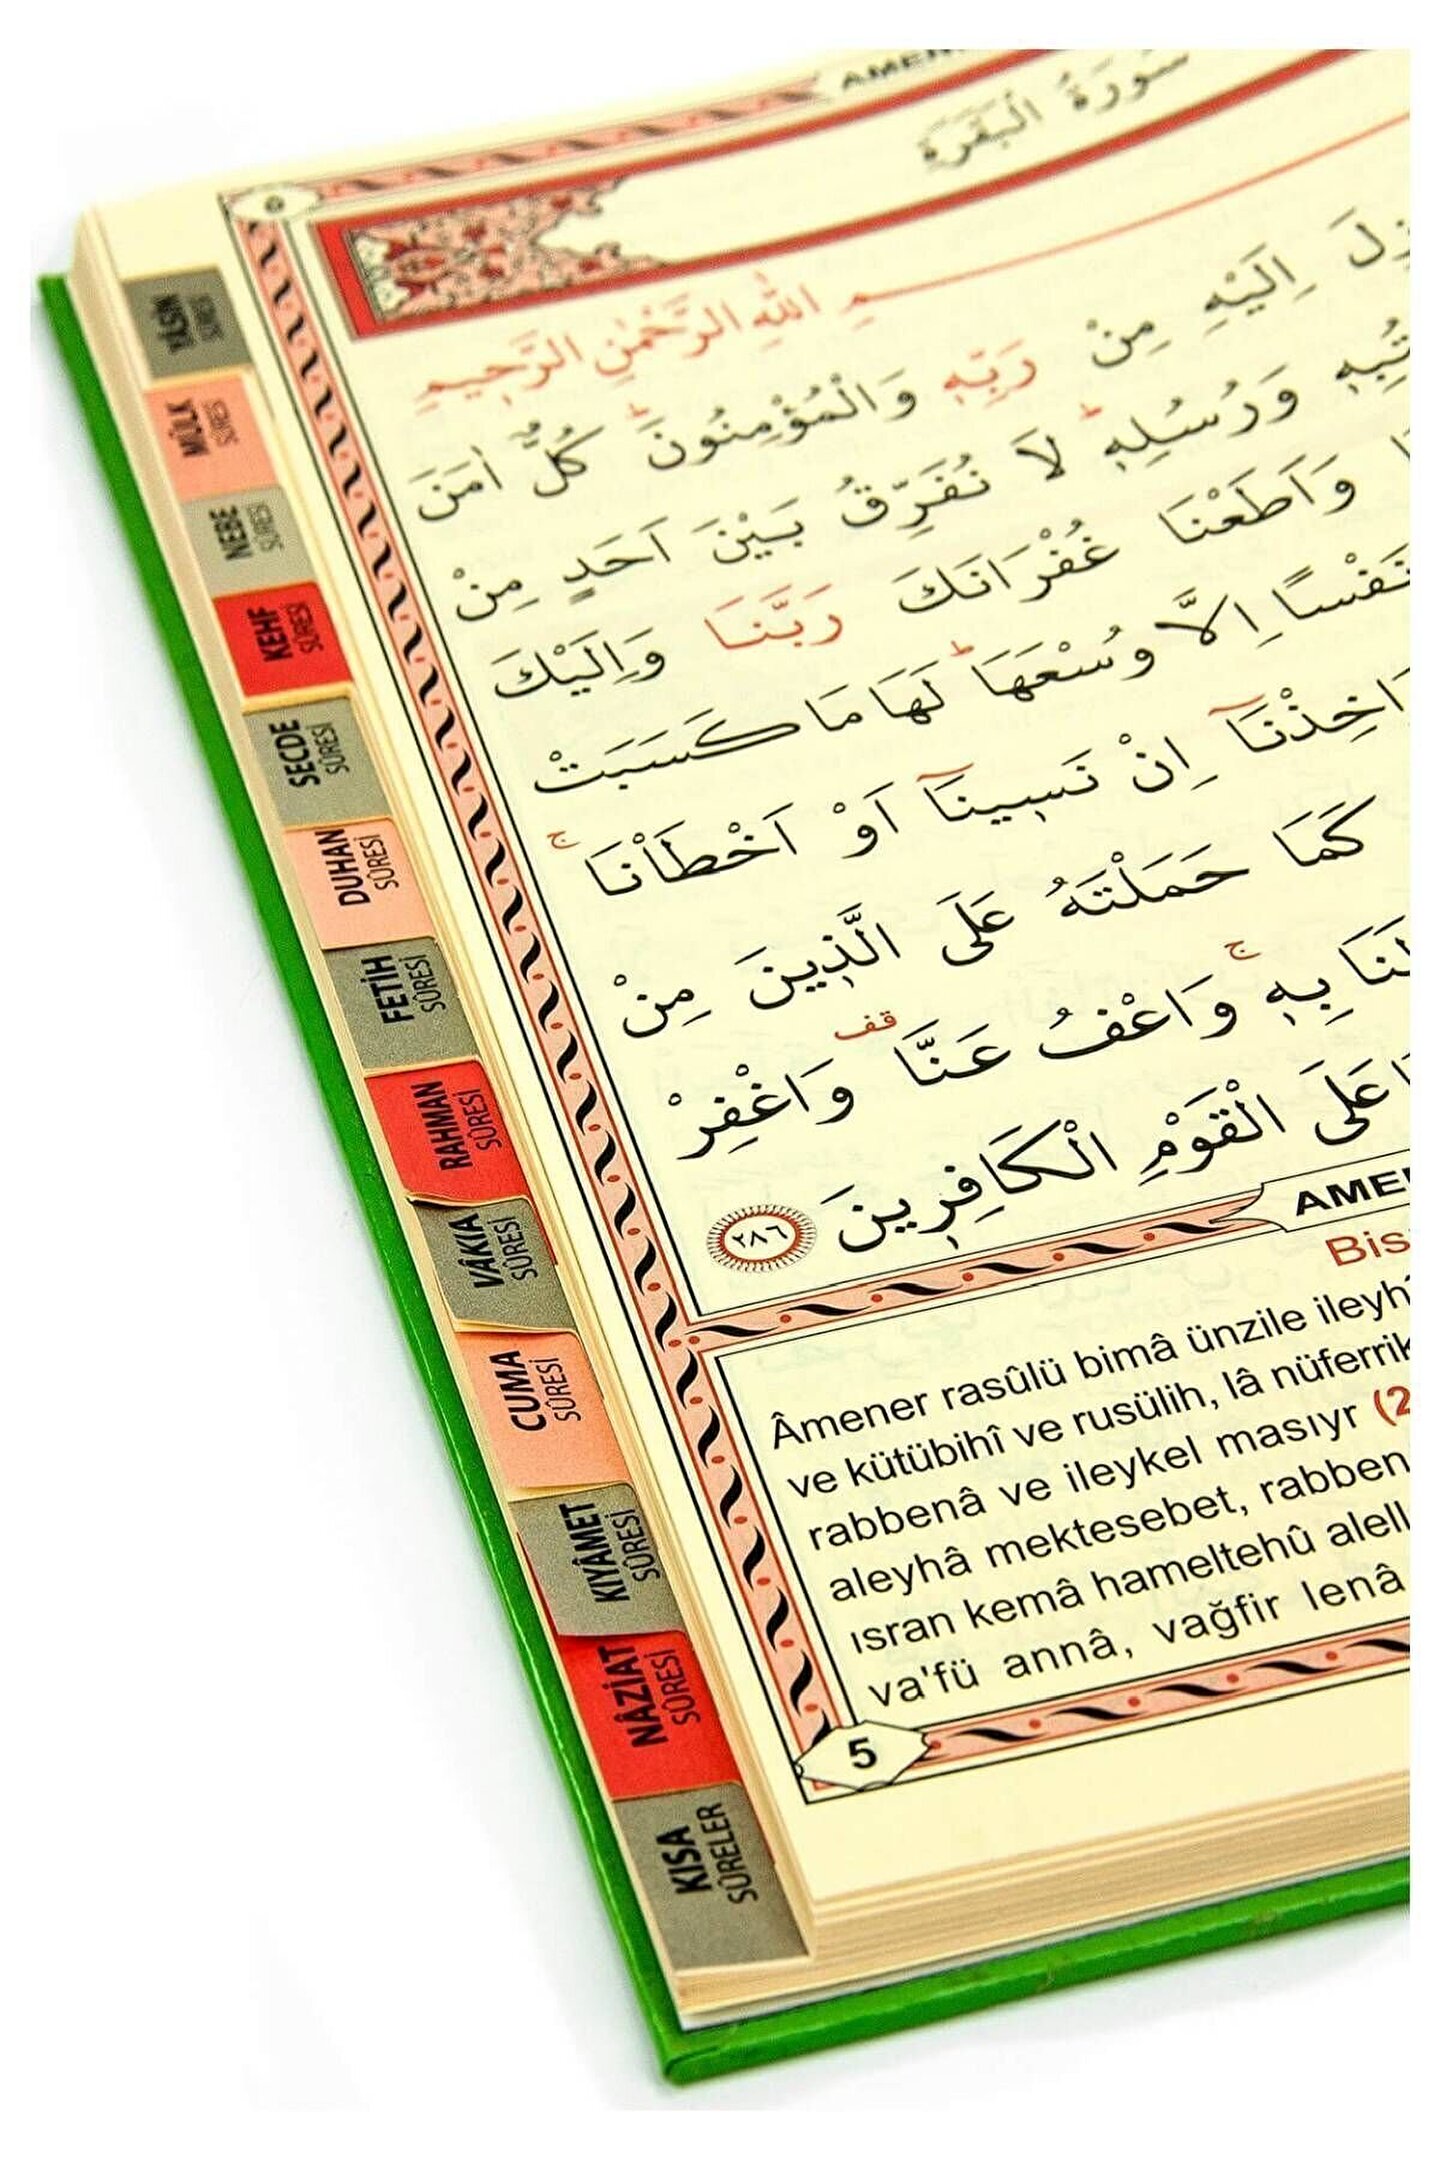 سُورَةُ الْبَقَرَةِ
ـمِ اللّٰهِ الرَّحْمٰنِ الرَّحٖيمِ
اِلَيْهِ مِنْ رَبِّهٖ وَالْمُؤْمِنُونَؕ كُلٌّ اٰمَنَ
وَرُسُلِهٖؕ لَا نُفَرِّقُ بَيْنَ اَحَدٍ مِنْ
وَاَطَعْنَا غُفْرَانَكَ رَبَّنَا وَاِلَيْكَ
نَفْسًا اِلَّا وُسْعَهَاؕ لَهَا مَا كَسَبَتْ
اِنْ نَسٖينَٓا اَوْ اَخْطَاْنَاۚ
كَمَا حَمَلْتَهُ عَلَى الَّذٖينَ مِنْ
لَنَا بِهٖۚ وَاعْفُ عَنَّا قف وَاغْفِرْ
عَلَى الْقَوْمِ الْكَافِرٖينَ ٢٨٦
Âmener rasûlü bimâ ünzile ileyh
ve kütübihî ve rusülih, lâ nüferrik
rabbenâ ve ileykel masıyr (2
aleyhâ mektesebet, rabben
ısran kemâ hameltehû alell
va'fü annâ, vağfir lenâ
5
YÂSİN
SÛRESİ
MÜLK
SÛRESİ
NEBE
SÛRESİ
KEHF
SÛRESİ
SECDE
SÛRESİ
DUHAN
SÛRESİ
FETİH
SÛRESİ
RAHMAN
SÛRESİ
VÂKIA
SÛRESİ
CUMA
SÛRESİ
KIYÂMET
SÛRESİ
NÂZİAT
SÛRESİ
KISA
SÛRELER